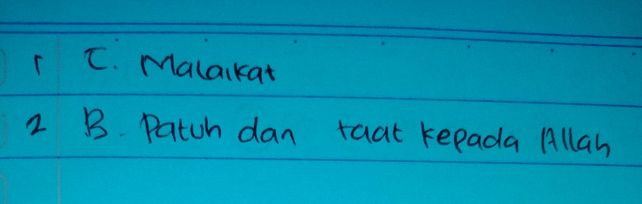 1 C. Malaikat
2 B. Patuh dan taat kepada Allah